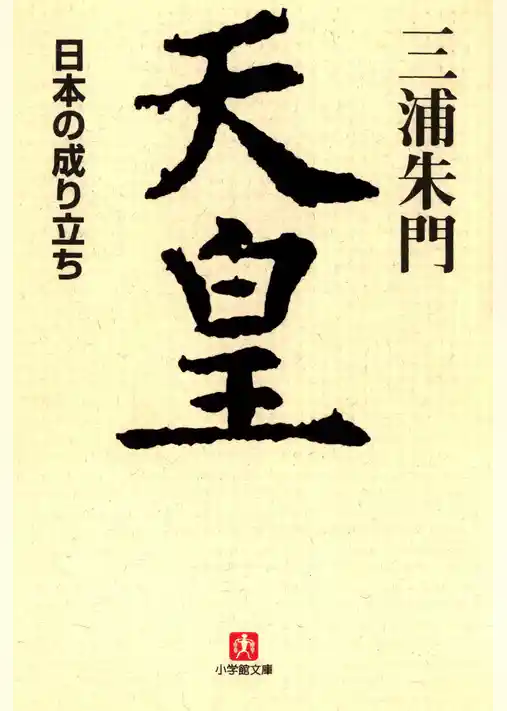 三浦朱門
天皇
日本の成り立ち
小学館文庫